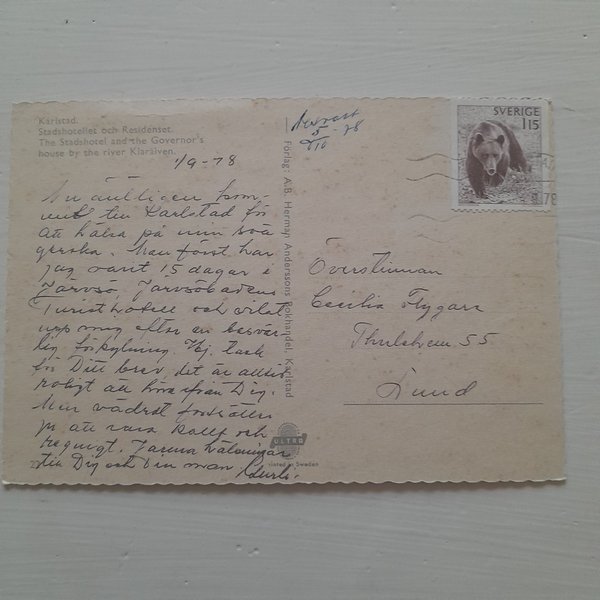 Karlstad.
Stadshotellet och Residenset.
The Stadshotel and the Governor's
house by the river Klarälven.
1/9-78
Nu äntligen kom-
mit till Karlstad för
att hälsa på min svä
gerska. Men först har
jag varit 15 dagar i
Järvsö, Järvsöbadens
Turisthotell och vilat
upp mig efter en besvär-
lig förkylning. Hej, tack
för Ditt brev, det är alltid
roligt att höra från Dig.
Men vädret fortsätter
ju att vara kallt och
regnigt. Varma hälsningar
till Dig och Din man
5/10 -78
Förlag: A.B. Herman Anderssons Bokhandel, Karlstad
SVERIGE
115
78
Överstinnan
Cecilia Flygare
Thulehem 55
Lund
ULTRA
Printed in Sweden